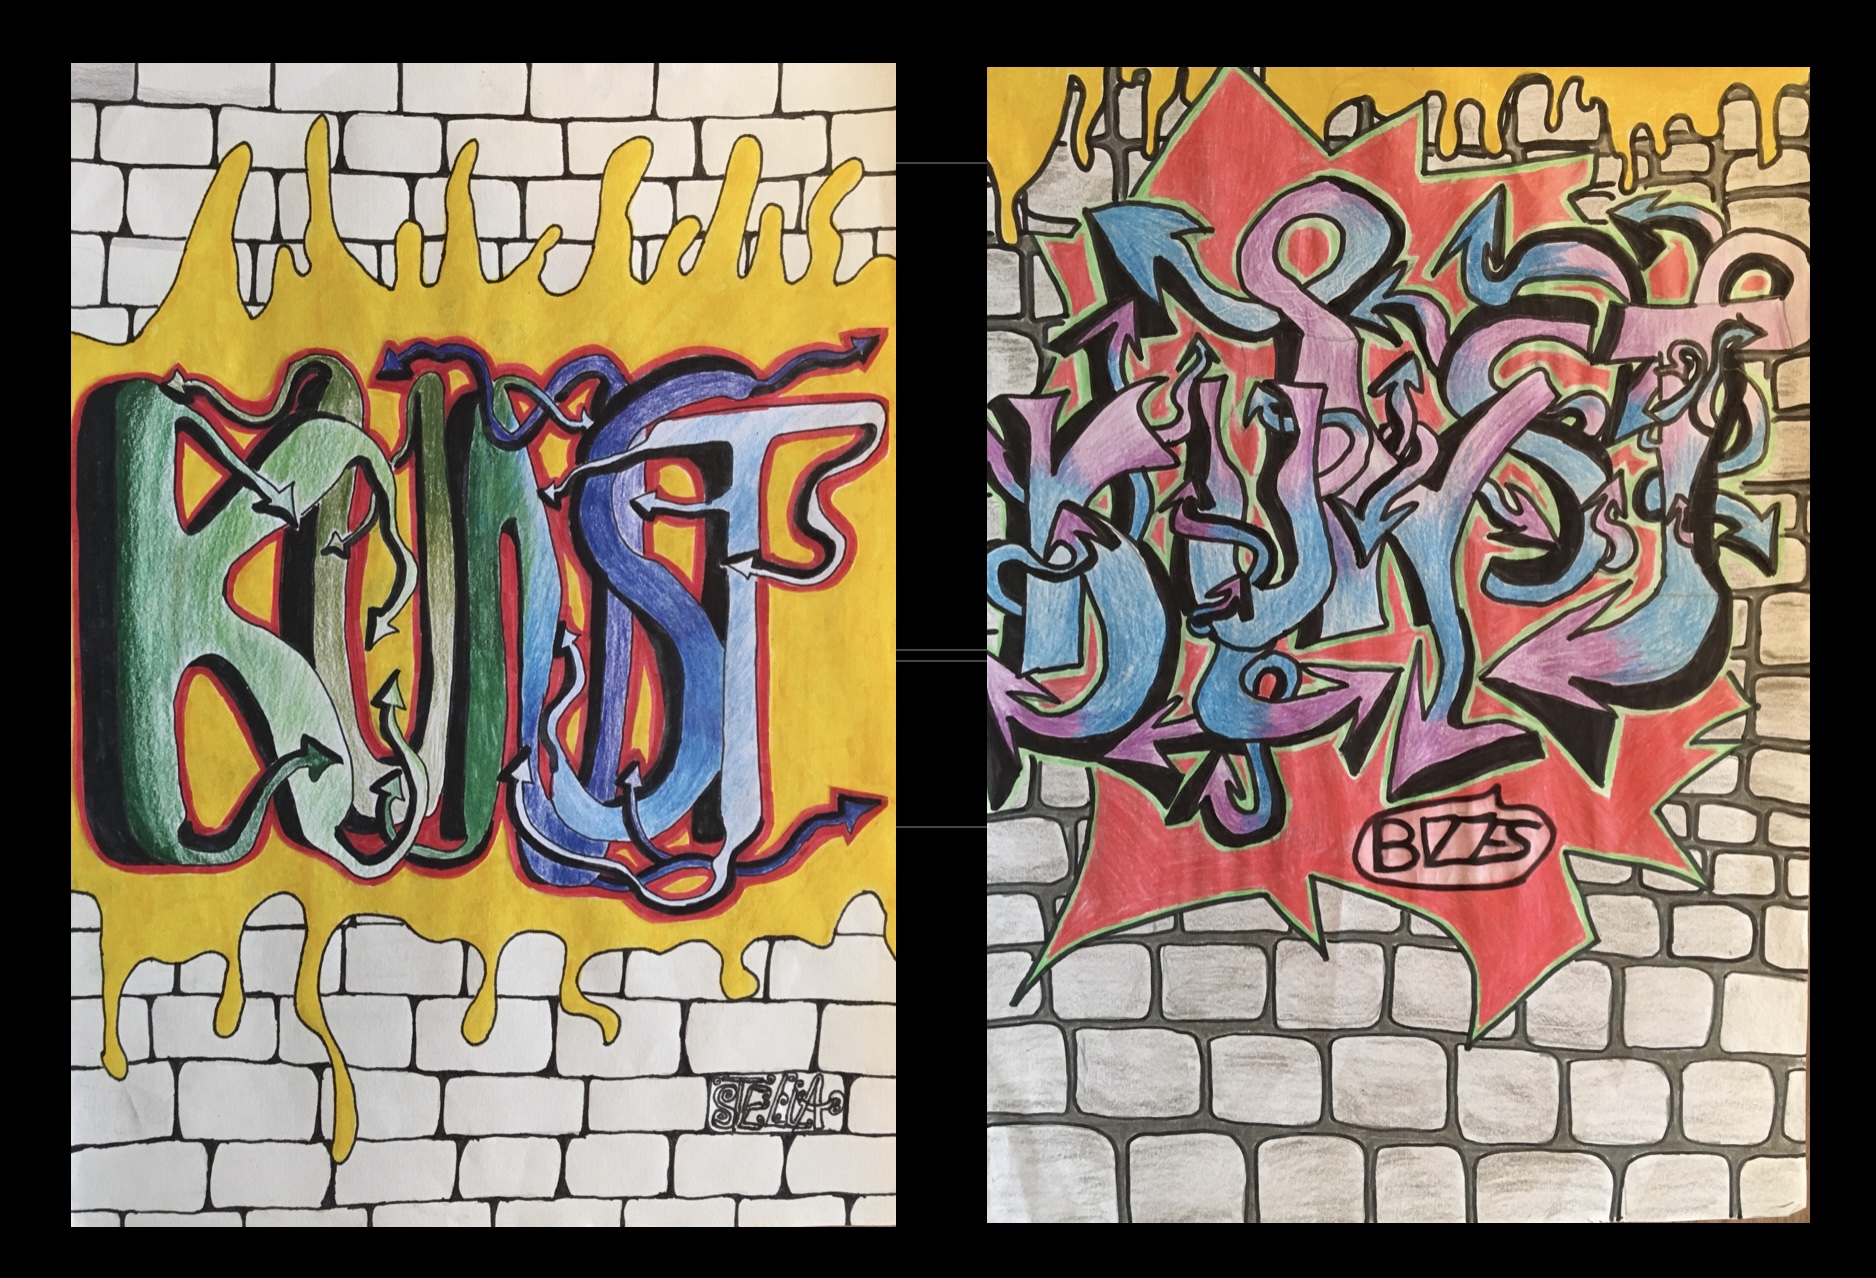 KUnST
STELLA
KUNST